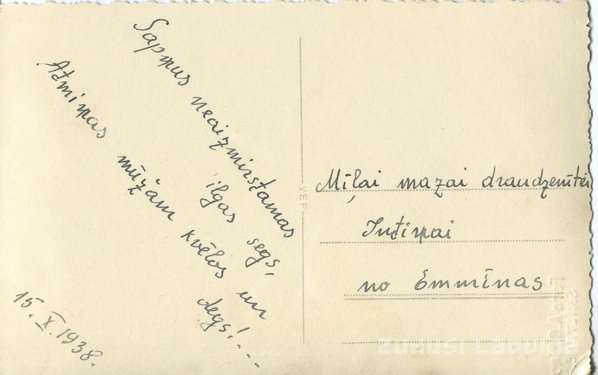 Sapņus neaizmirstamas
ilgas segs,
Atmiņas mūžam kvēlos un
degs!...
15. X. 1938.
VEF
Mīļai mazai draudzenītei
Intiņai
no Emmīnas